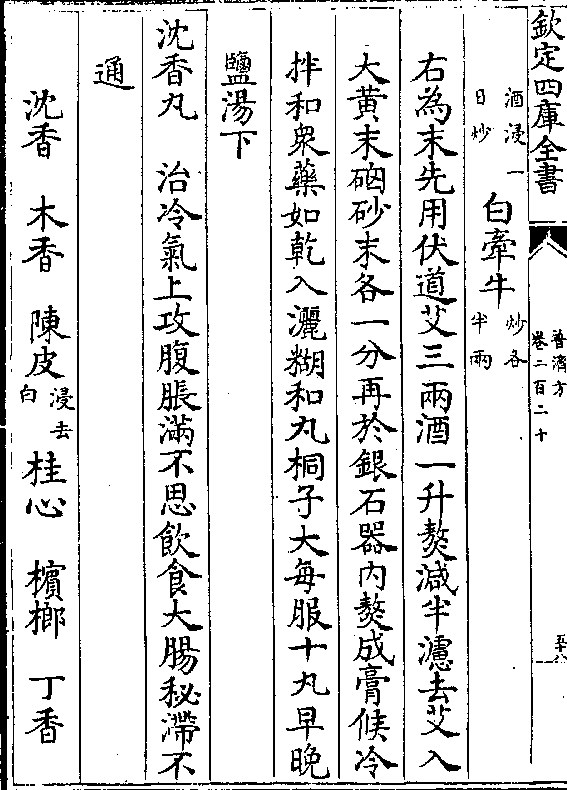 欽定四庫全書
普濟方
卷二百二十
五十八
酒浸一日炒 白牽牛炒各半兩
右為末先用伏道艾三兩酒一升熬減半濾去艾入
大黃末硇砂末各一分再於銀石器內熬成膏候冷
拌和衆藥如乾入灑糊和丸桐子大每服十丸早晚
鹽湯下
沈香丸 治冷氣上攻腹脹滿不思飲食大腸秘滯不
通
沈香 木香 陳皮浸去白 桂心 檳榔 丁香